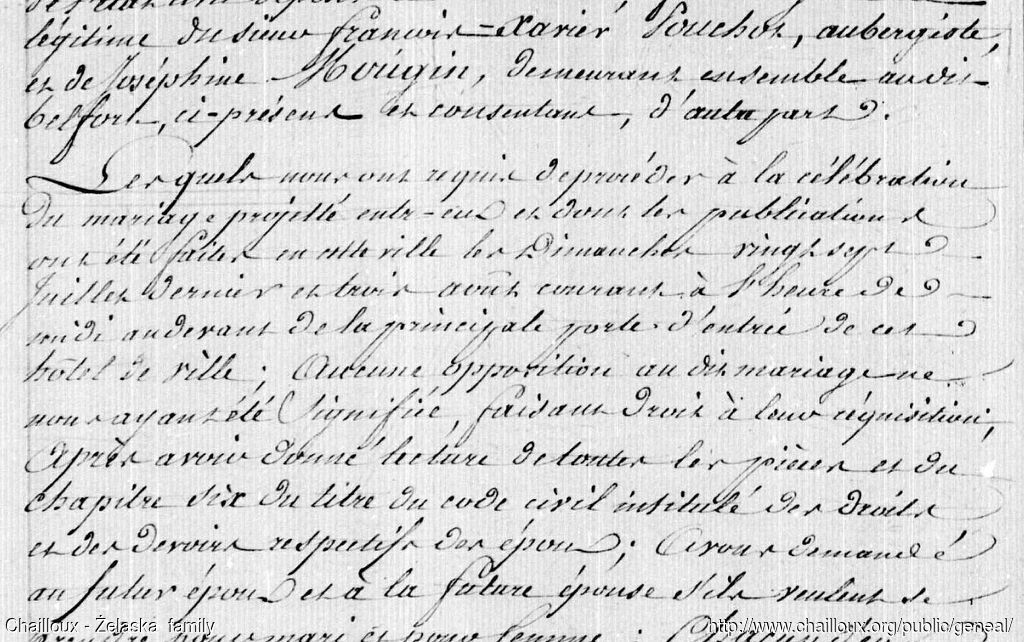 légitime du sieur françois=Xavier Pouchot, aubergiste,
et de Joséphine Mougin, demeurant ensemble audit
belfort, ci-présens et consentans, d'autre part.
Lesquels nous ont requis de procéder à la célébration
du mariage projetté entr-eux et dont les publications
ont été faites en cette ville les Dimanches vingt sept
Juillet dernier et trois août courant à l'heure de
midi au devant de la principale porte d'entrée de cet
hôtel de ville; Aucune opposition au dit mariage ne
nous ayant été signifiée, faisant droit à leur réquisition;
Après avoir donné lecture de toutes les pièces et du
chapitre six du titre du code civil intitulé des droits
et des devoirs respectifs des époux; Avons demandé
au futur époux et à la future épouse s'ils veulent se
prendre pour mari et pour femme;
Chailloux - Želaska family
http://www.chailloux.org/public/geneal/